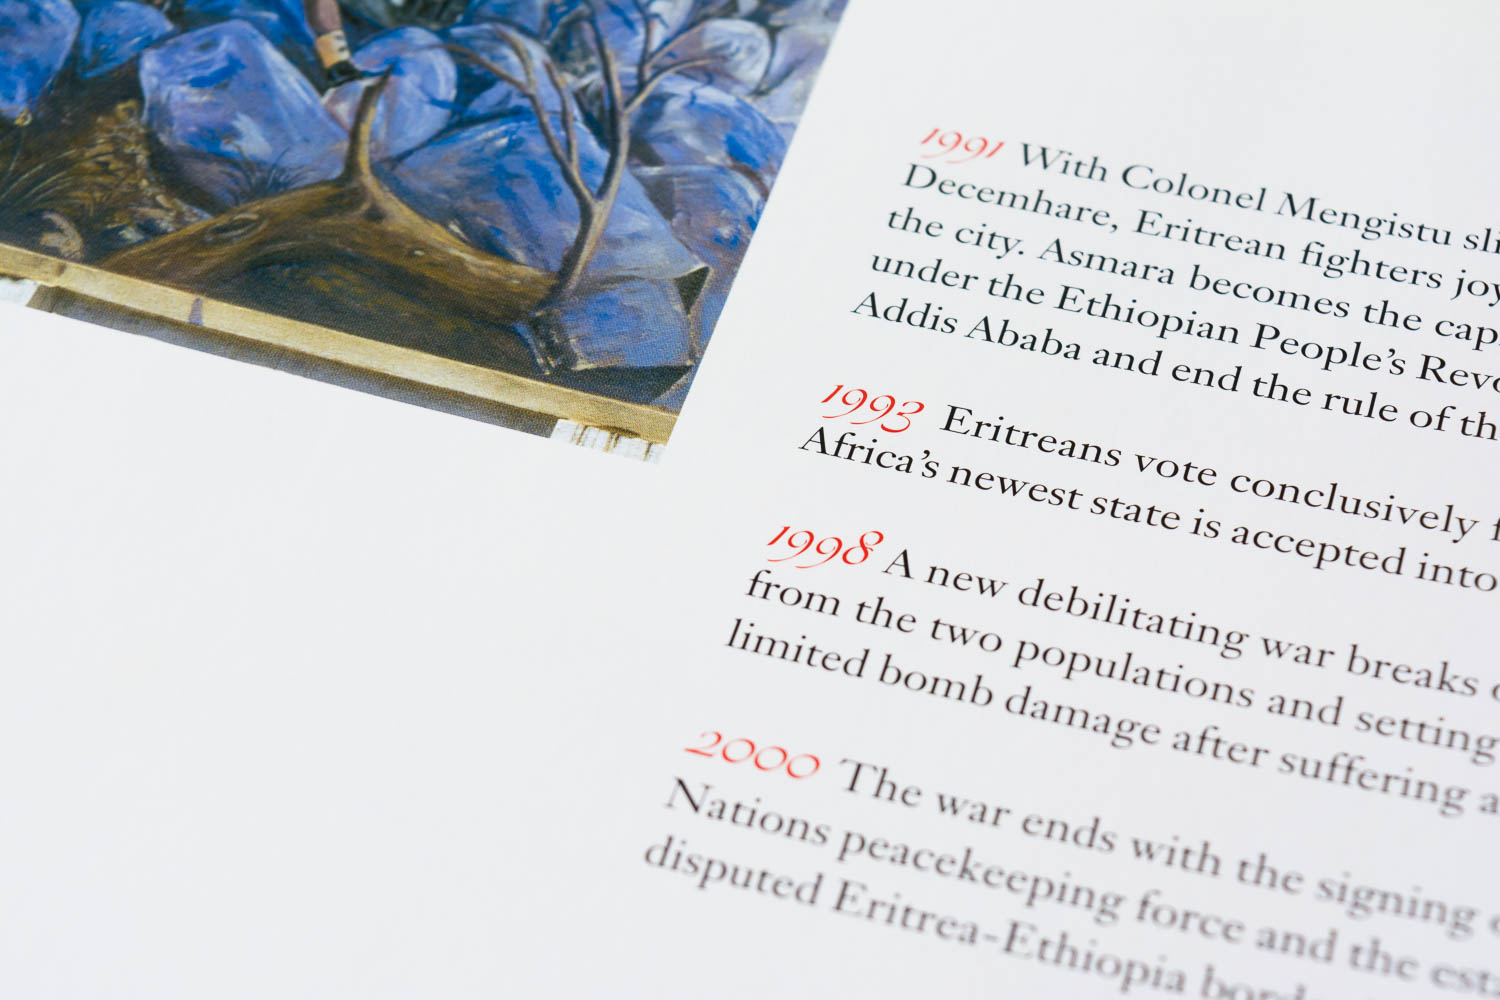 1991 With Colonel Mengistu
Decemhare, Eritrean fighters
the city. Asmara becomes the
under the Ethiopian People’s
Addis Ababa and end the rule of
1993 Eritreans vote conclusively
Africa’s newest state is accepted into
1998 A new debilitating war breaks
from the two populations and setting
limited bomb damage after suffering
2000 The war ends with the signing
Nations peacekeeping force and the
disputed Eritrea-Ethiopia